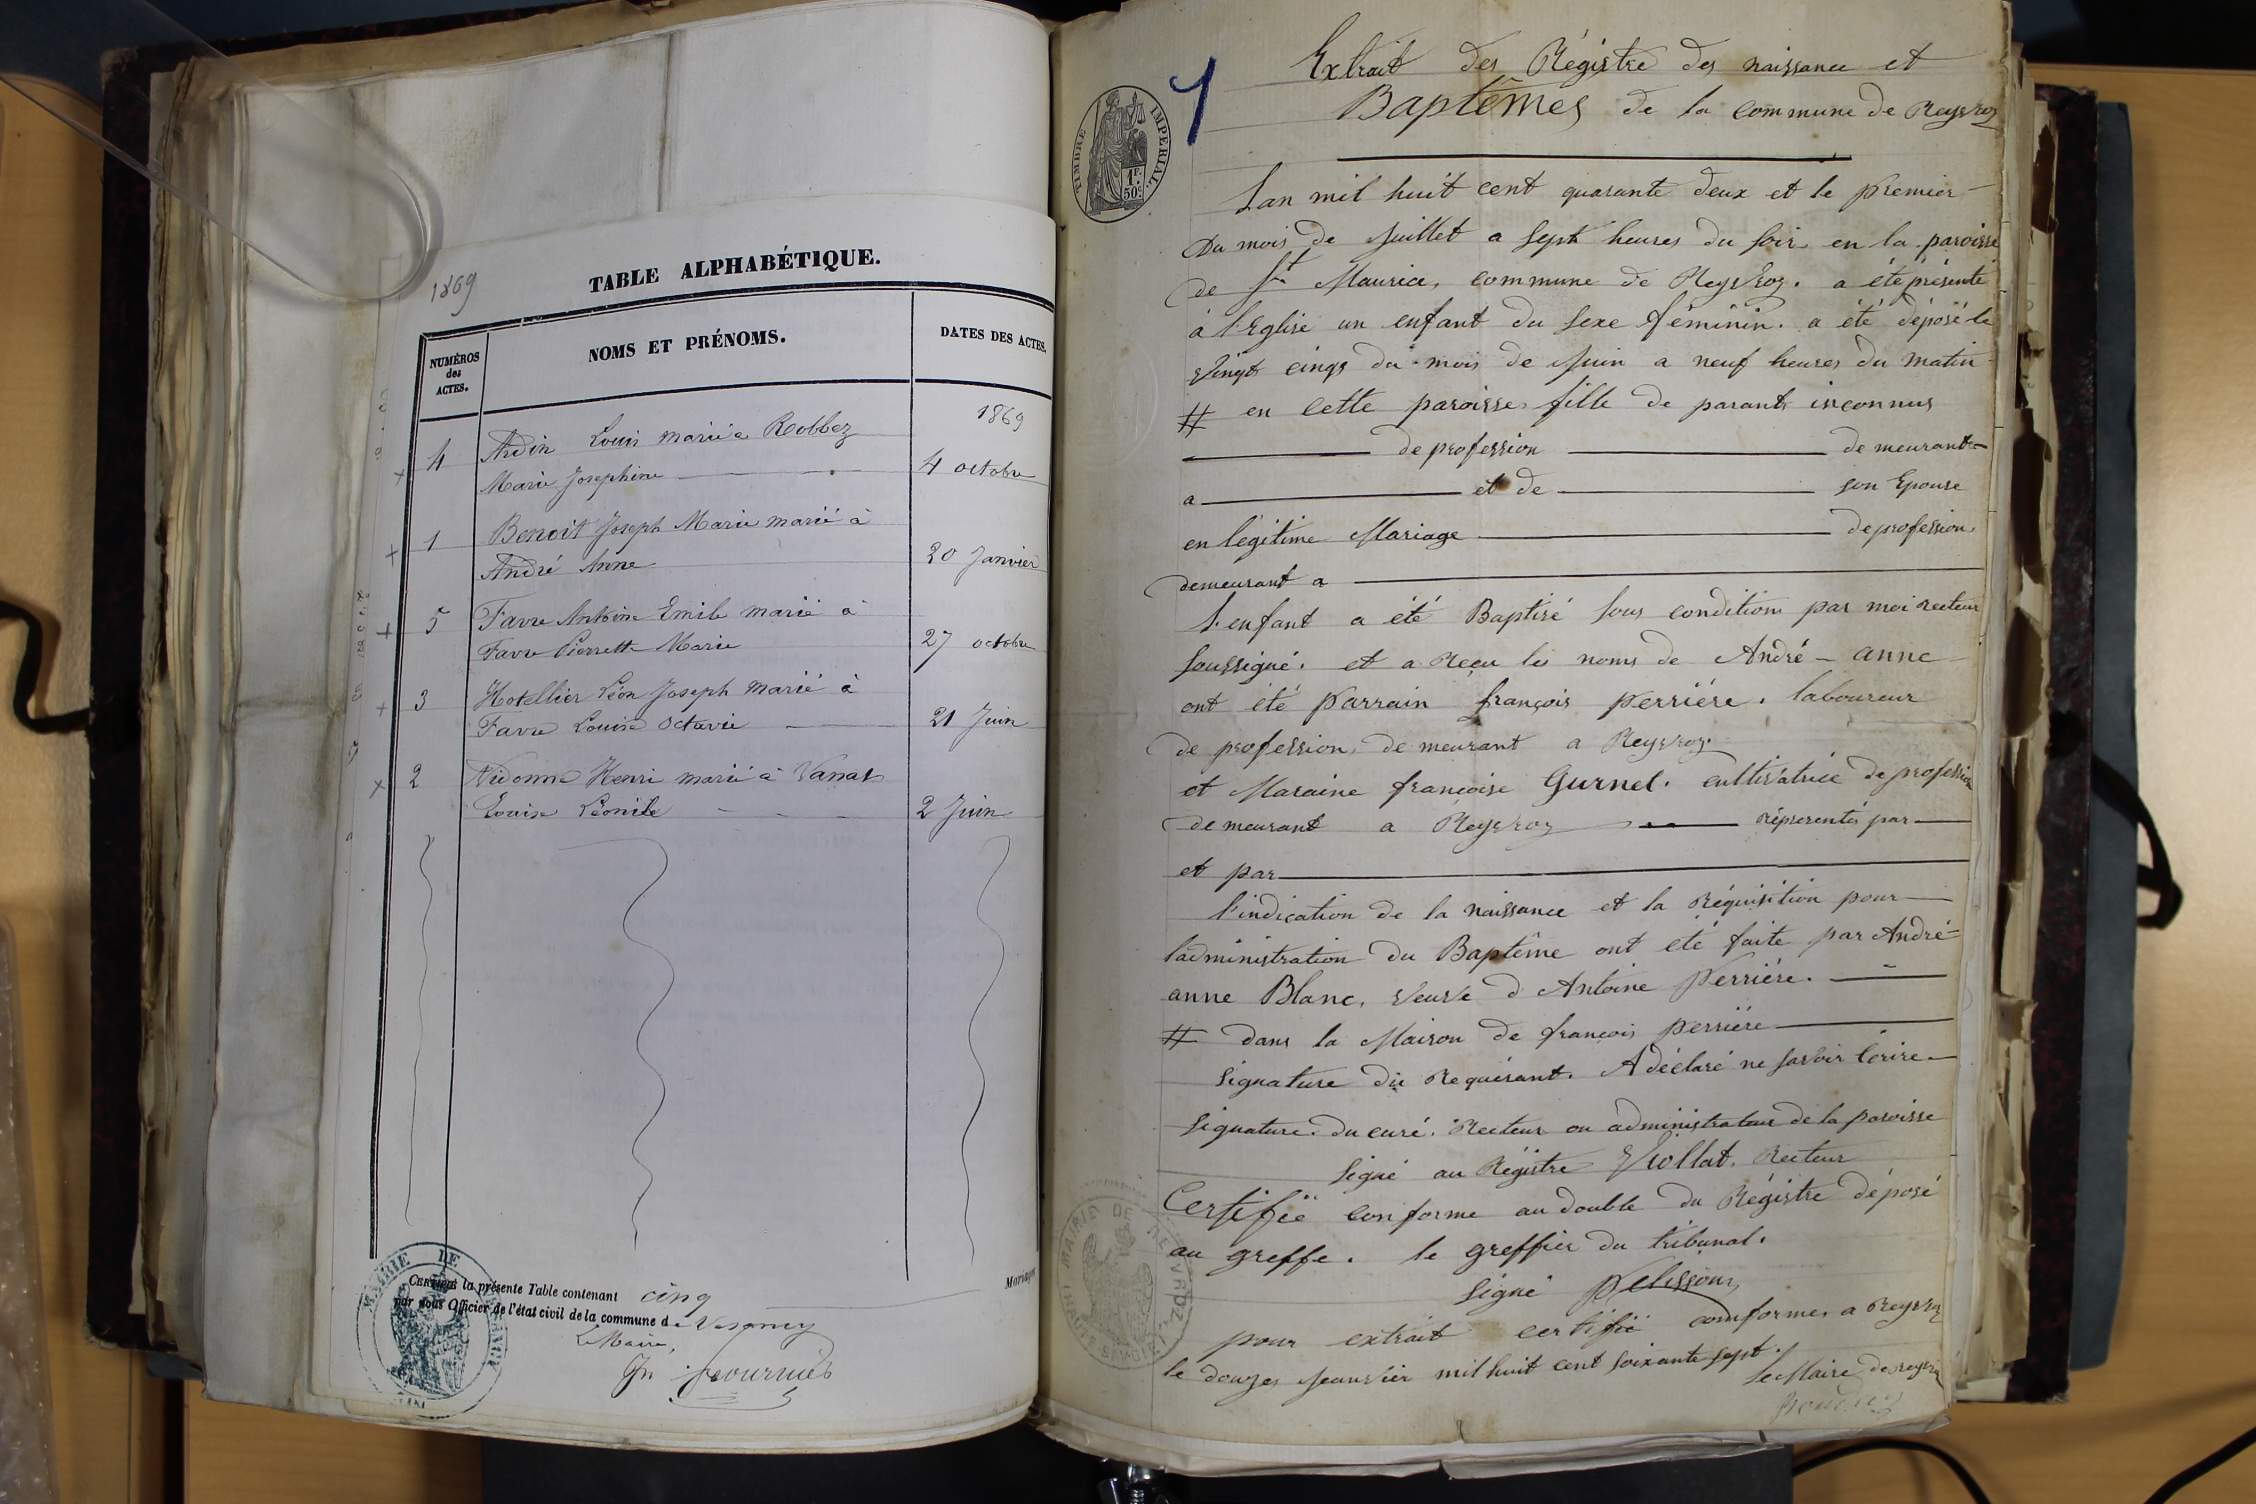 1869
TABLE ALPHABÉTIQUE.
NUMÉROS
des
ACTES.
NOMS ET PRÉNOMS.
DATES DES ACTES.
1869
4 Ardin Louis marié à Robbez
Marie Josephine 4 octobre
1 Benoit Joseph Marie marié à
André Anne 20 Janvier
5 Favre Antoine Emile marié à
Favre Pierrette Marie 27 octobre
3 Hotellier Léon Joseph marié à
Favre Louise Octavie 21 Juin
2 Henri marié à Vanat
Louise Léonile 2 Juin
CERTIFIÉ la présente Table contenant cinq Mariages
par nous Officier de l'état civil de la commune de
Le Maire,
Fournier
MAIRIE DE
TIMBRE IMPERIAL
1F.
50c
Extrait des Régistre des naissance et
Baptêmes de la commune de Reyvroz
Lan mil huit cent quarante deux et le premier
Du mois de Juillet a sept heures du soir en la paroisse
de St Maurice, commune de Reyvroz. a été présenté
à l'Eglise un enfant du sexe féminin. a été déposé le
vingt cinq du mois de Juin a neuf heures du matin
# en cette paroisse fille de parants inconnus
de profession de meurant
a et de son Epouse
en légitime Mariage de profession
demeurant a
l'enfant a été Baptisé sous condition par moi recteur
soussigné. et a reçu les noms de André - anne
ont été parrain françois perriére. laboureur
de profession, de meurant a Reyvroz.
et Maraine françoise Gurnel. cultivatrice de profession
de meurant a Reyvroz répresentés par
et par
l'indication de la naissance et la réquisition pour
ladministration du Baptême ont été faite par André
anne Blanc, veuve d Antoine perriére.
# dans la Maison de françois perriére
signature du Requérant. A déclaré ne savoir écrire
signature du curé. Recteur ou administrateur de la paroisse
signé au Régistre Viollat. Recteur
Certifié conforme au double du Régistre déposé
au greffe. le greffier du tribunal.
signé Pelisson
pour extrait certifié conforme, a Reyvroz
le douze Jeanvier mil huit cent soixante sept.
le Maire de reyvroz
MAIRIE DE REYVROZ